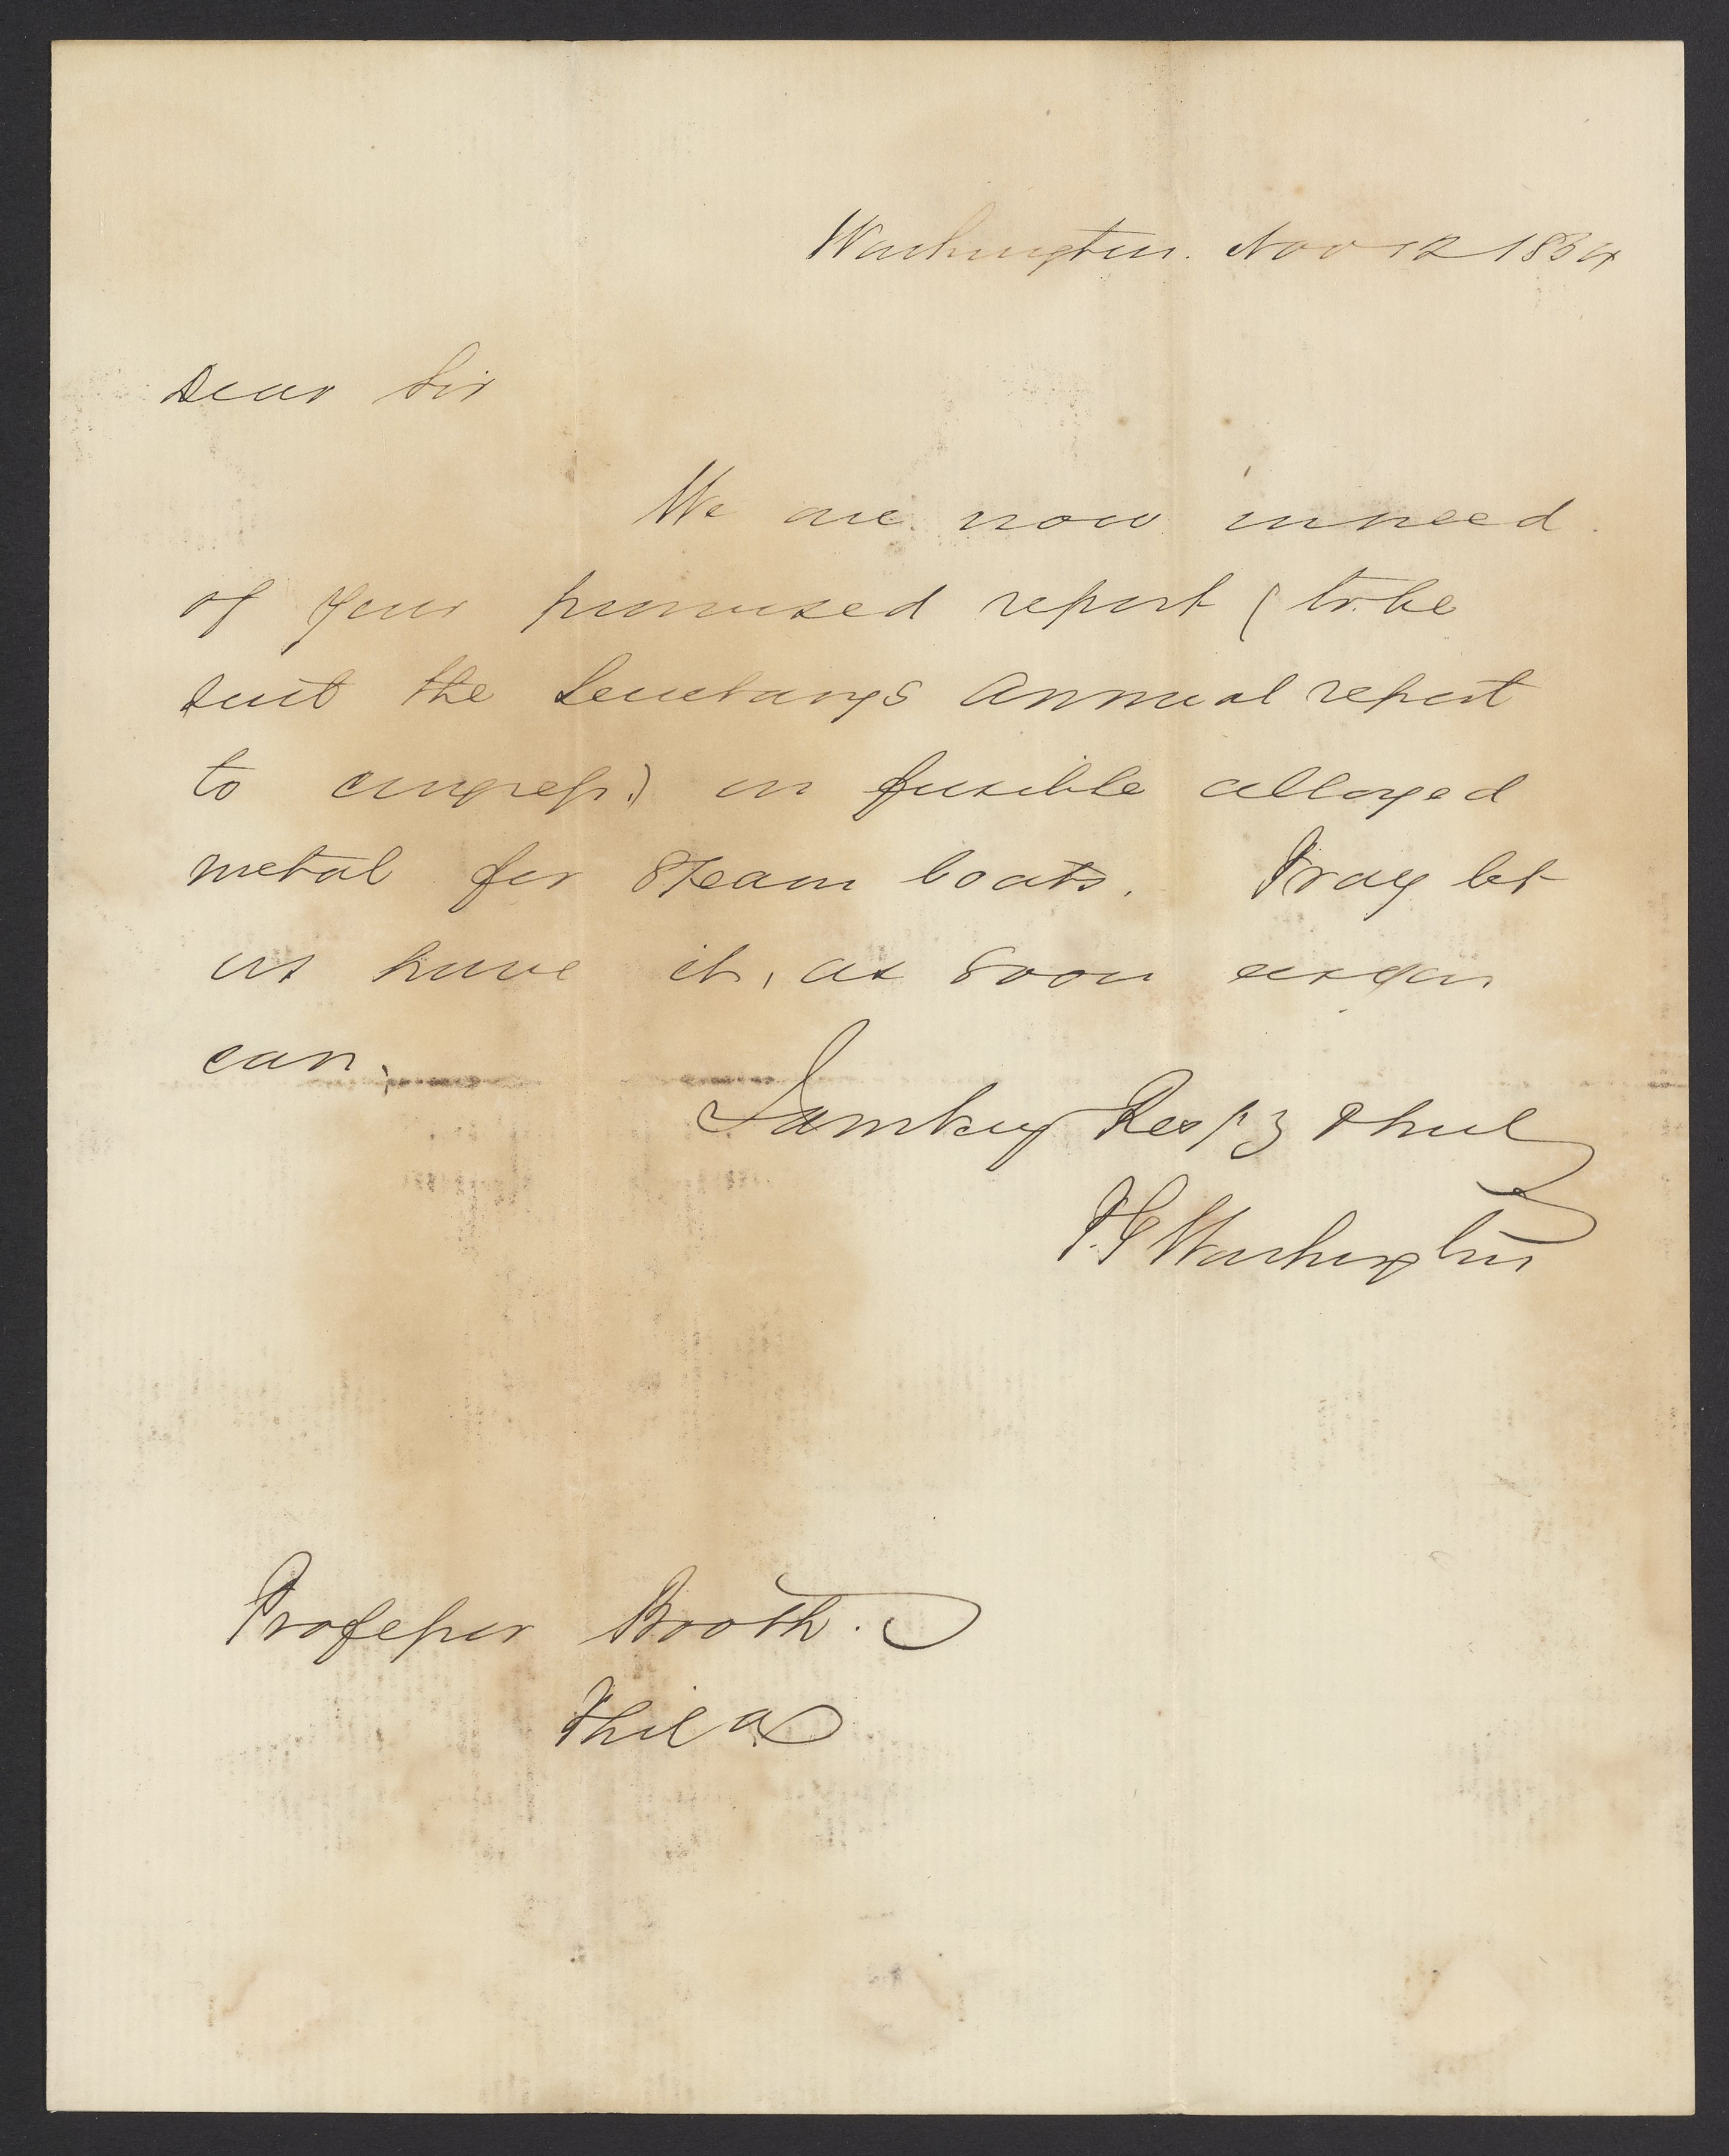 Washington. Nov 12 1854
Dear Sir
We are now in need
of your promised report (to be
sent the Secretarys annual report
to congress.) on fusible alloyed
metal for Steam boats. Pray let
us have it, as soon as you
can.
I am very Resp'y &
P.G Washington
Professor Booth.
Phila